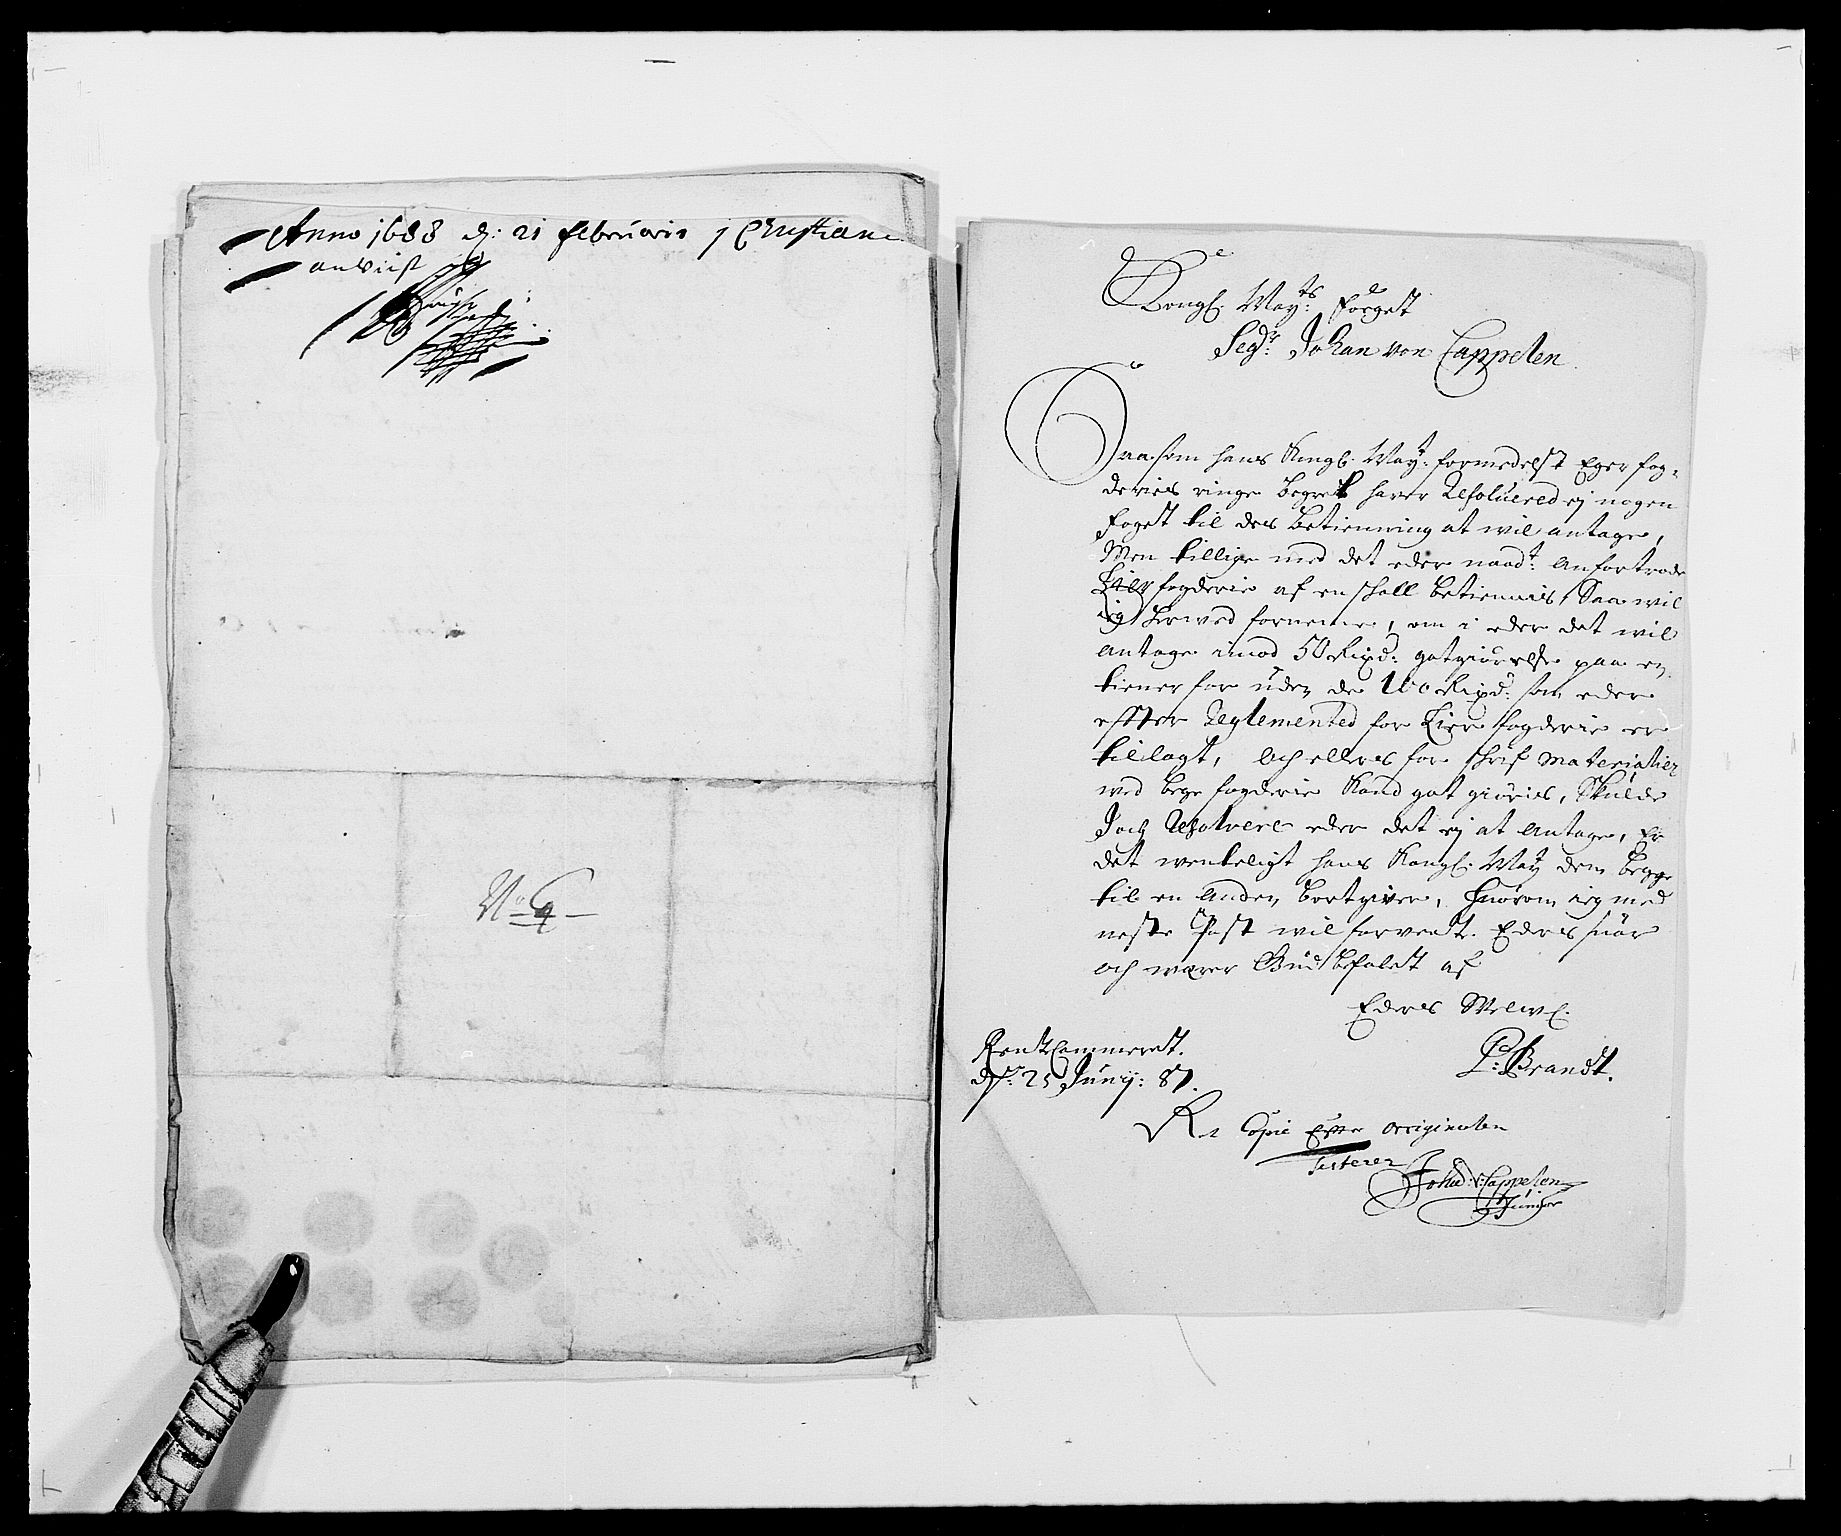 Anno 1688 d: 21 februarii j Christiania
anviist
No 4
Kongl: May:ts foeget
Segr: Johan von Cappelen
Saasom hans Kongl: May:t formedelst Eger fog-
deries ringe begreb hafer Resoluered ej nogen
foget til des betienning at wil antage,
Men tillige med det eder naad:t anfortrode
Lier fogderie af en schall betiennis, Saa wil
ieg herwed fornemme, om i eder det wil
antage imod 50 Rixd: gotgiørelse paa en
tiener for uden de 100 Rixd: som eder
effter Reglemented for Lier fogderie er
tillagt, och ellers for schrif materialier
wed bege fogderie kand got giøris, Skulde
I och Resolvere eder det ej at antage, Er
det wenteligt hans Kongl: May:t dem begge
til en anden bortgiver, huorom ieg med
neste Post wil forvente Eders suar
och warer Gud befalet af
Eders Welw:
Rent Cammeret.
P: Brandt.
d: 25 Junij: 87.
Rt Copie Efter originalen
testerer
Joha: v: Cappelen
Junior